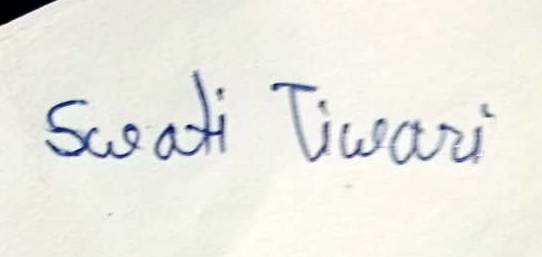 Swati Tiwari